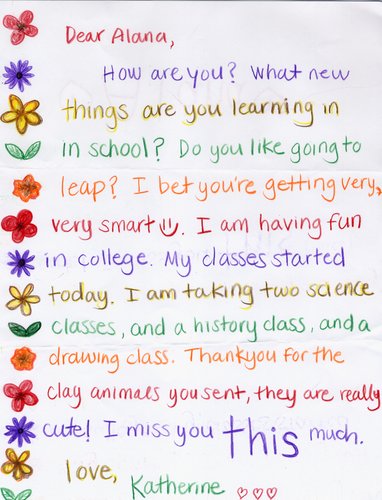 Dear Alana,
How are you? What new
things are you learning in
in school? Do you like going to
leap? I bet you're getting very,
very smart. I am having fun
in college. My classes started
today. I am taking two science
classes, and a history class, and a
drawing class. Thankyou for the
clay animals you sent, they are really
cute! I miss you this much.
love,
Katherine ♡♡♡